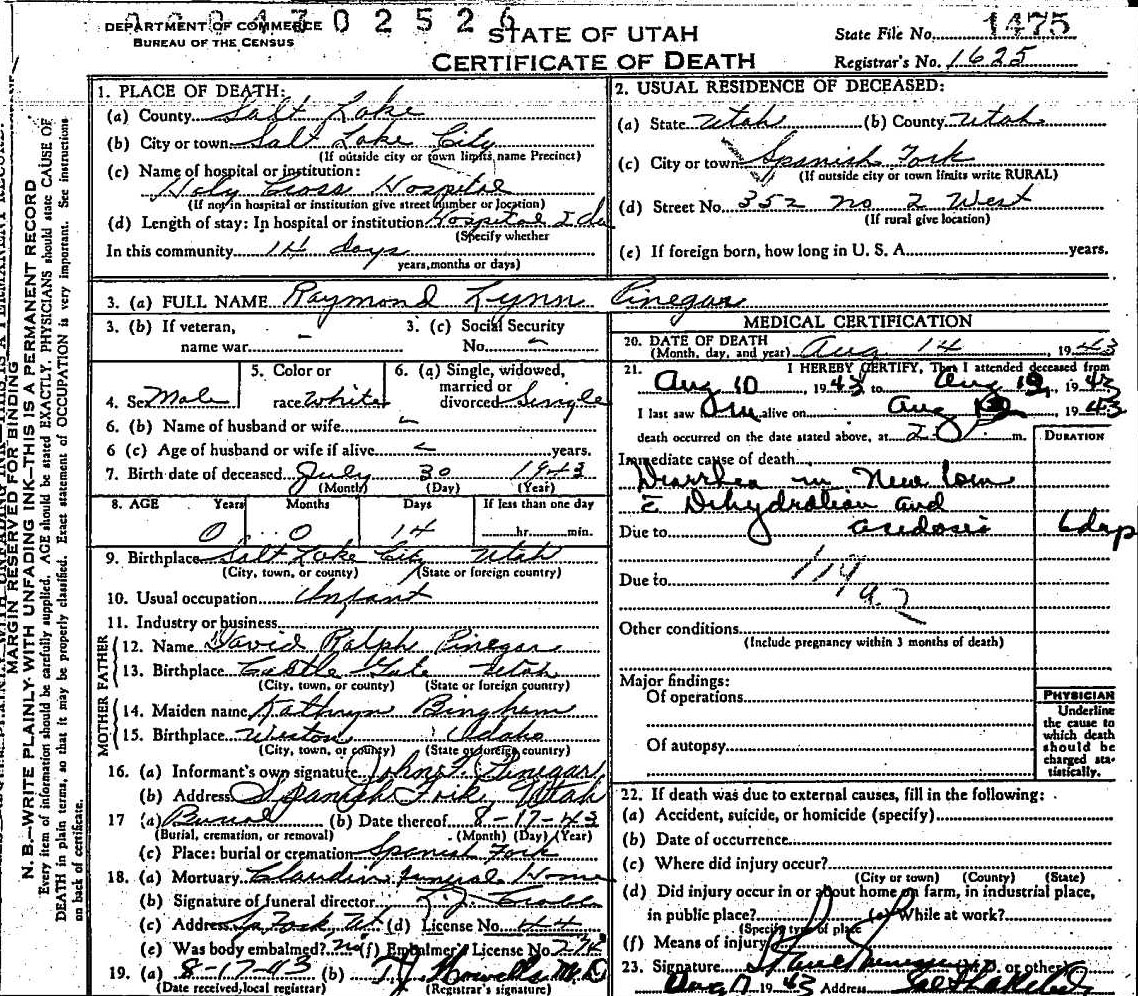 DEPARTMENT OF COMMERCE
BUREAU OF THE CENSUS
0 2 5 2 6
STATE OF UTAH
CERTIFICATE OF DEATH
State File No. 1475
Registrar's No. 1625
MARGIN RESERVED FOR BINDING
N. B.—WRITE PLAINLY WITH UNFADING INK—THIS IS A PERMANENT RECORD
Every item of information should be carefully supplied. AGE should be stated EXACTLY. PHYSICIANS should state CAUSE OF
DEATH in plain terms, so that it may be properly classified. Exact statement of OCCUPATION is very important. See instructions
on back of certificate.
1. PLACE OF DEATH:
(a) County Salt Lake
(b) City or town Salt Lake City
(If outside city or town limits, name Precinct)
(c) Name of hospital or institution:
Holy Cross Hospital
(If not in hospital or institution give street number or location)
(d) Length of stay: In hospital or institution Hospital
(Specify whether
In this community 14 days
years, months or days)
2. USUAL RESIDENCE OF DECEASED:
(a) State Utah (b) County Utah
(c) City or town Spanish Fork
(If outside city or town limits write RURAL)
(d) Street No. 352 no 2 West
(If rural give location)
(e) If foreign born, how long in U. S. A. years.
3. (a) FULL NAME Raymond Lynn Pinegar
3. (b) If veteran,
name war -
3. (c) Social Security
No. -
4. Sex Male
5. Color or
race White
6. (a) Single, widowed,
married or
divorced Single
6. (b) Name of husband or wife -
6 (c) Age of husband or wife if alive - years.
7. Birth date of deceased July 30 1943
(Month) (Day) (Year)
8. AGE Years Months Days If less than one day
0 0 14 hr. min.
9. Birthplace Salt Lake City Utah
(City, town, or county) (State or foreign country)
10. Usual occupation Infant
11. Industry or business
FATHER
12. Name David Ralph Pinegar
13. Birthplace Castle Gate Utah
(City, town, or county) (State or foreign country)
MOTHER
14. Maiden name Kathryn Bingham
15. Birthplace Weston Idaho
(City, town, or county) (State or foreign country)
16. (a) Informant's own signature John T. Pinegar
(b) Address Spanish Fork, Utah
17 (a) Burial (b) Date thereof 8-17-43
(Burial, cremation, or removal) (Month) (Day) (Year)
(c) Place: burial or cremation Spanish Fork
18. (a) Mortuary Claudin Funeral Home
(b) Signature of funeral director
(c) Address Sp Fork, Ut. (d) License No. 44
(e) Was body embalmed? no (f) Embalmer's License No.
19. (a) 8-17-43 (b) T. J. Howells M.D
(Date received, local registrar) (Registrar's signature)
MEDICAL CERTIFICATION
20. DATE OF DEATH
(Month, day, and year) Aug 14, 1943
21. I HEREBY CERTIFY, That I attended deceased from
Aug 10 1943 to Aug, 1943
I last saw him alive on Aug, 1943
death occurred on the date stated above, at 2 P. m.
DURATION
Immediate cause of death
Diarrhea in New born
c̄ Dihydration and
Due to acidosis 6 days
Due to 119
Other conditions
(Include pregnancy within 3 months of death)
Major findings:
Of operations
Of autopsy
PHYSICIAN
Underline
the cause to
which death
should be
charged sta-
tistically.
22. If death was due to external causes, fill in the following:
(a) Accident, suicide, or homicide (specify)
(b) Date of occurrence
(c) Where did injury occur?
(City or town) (County) (State)
(d) Did injury occur in or about home on farm, in industrial place,
in public place? (e) While at work?
(Specify type of place
(f) Means of injury
23. Signature (M. D. or other)
Aug 17 1943 Address